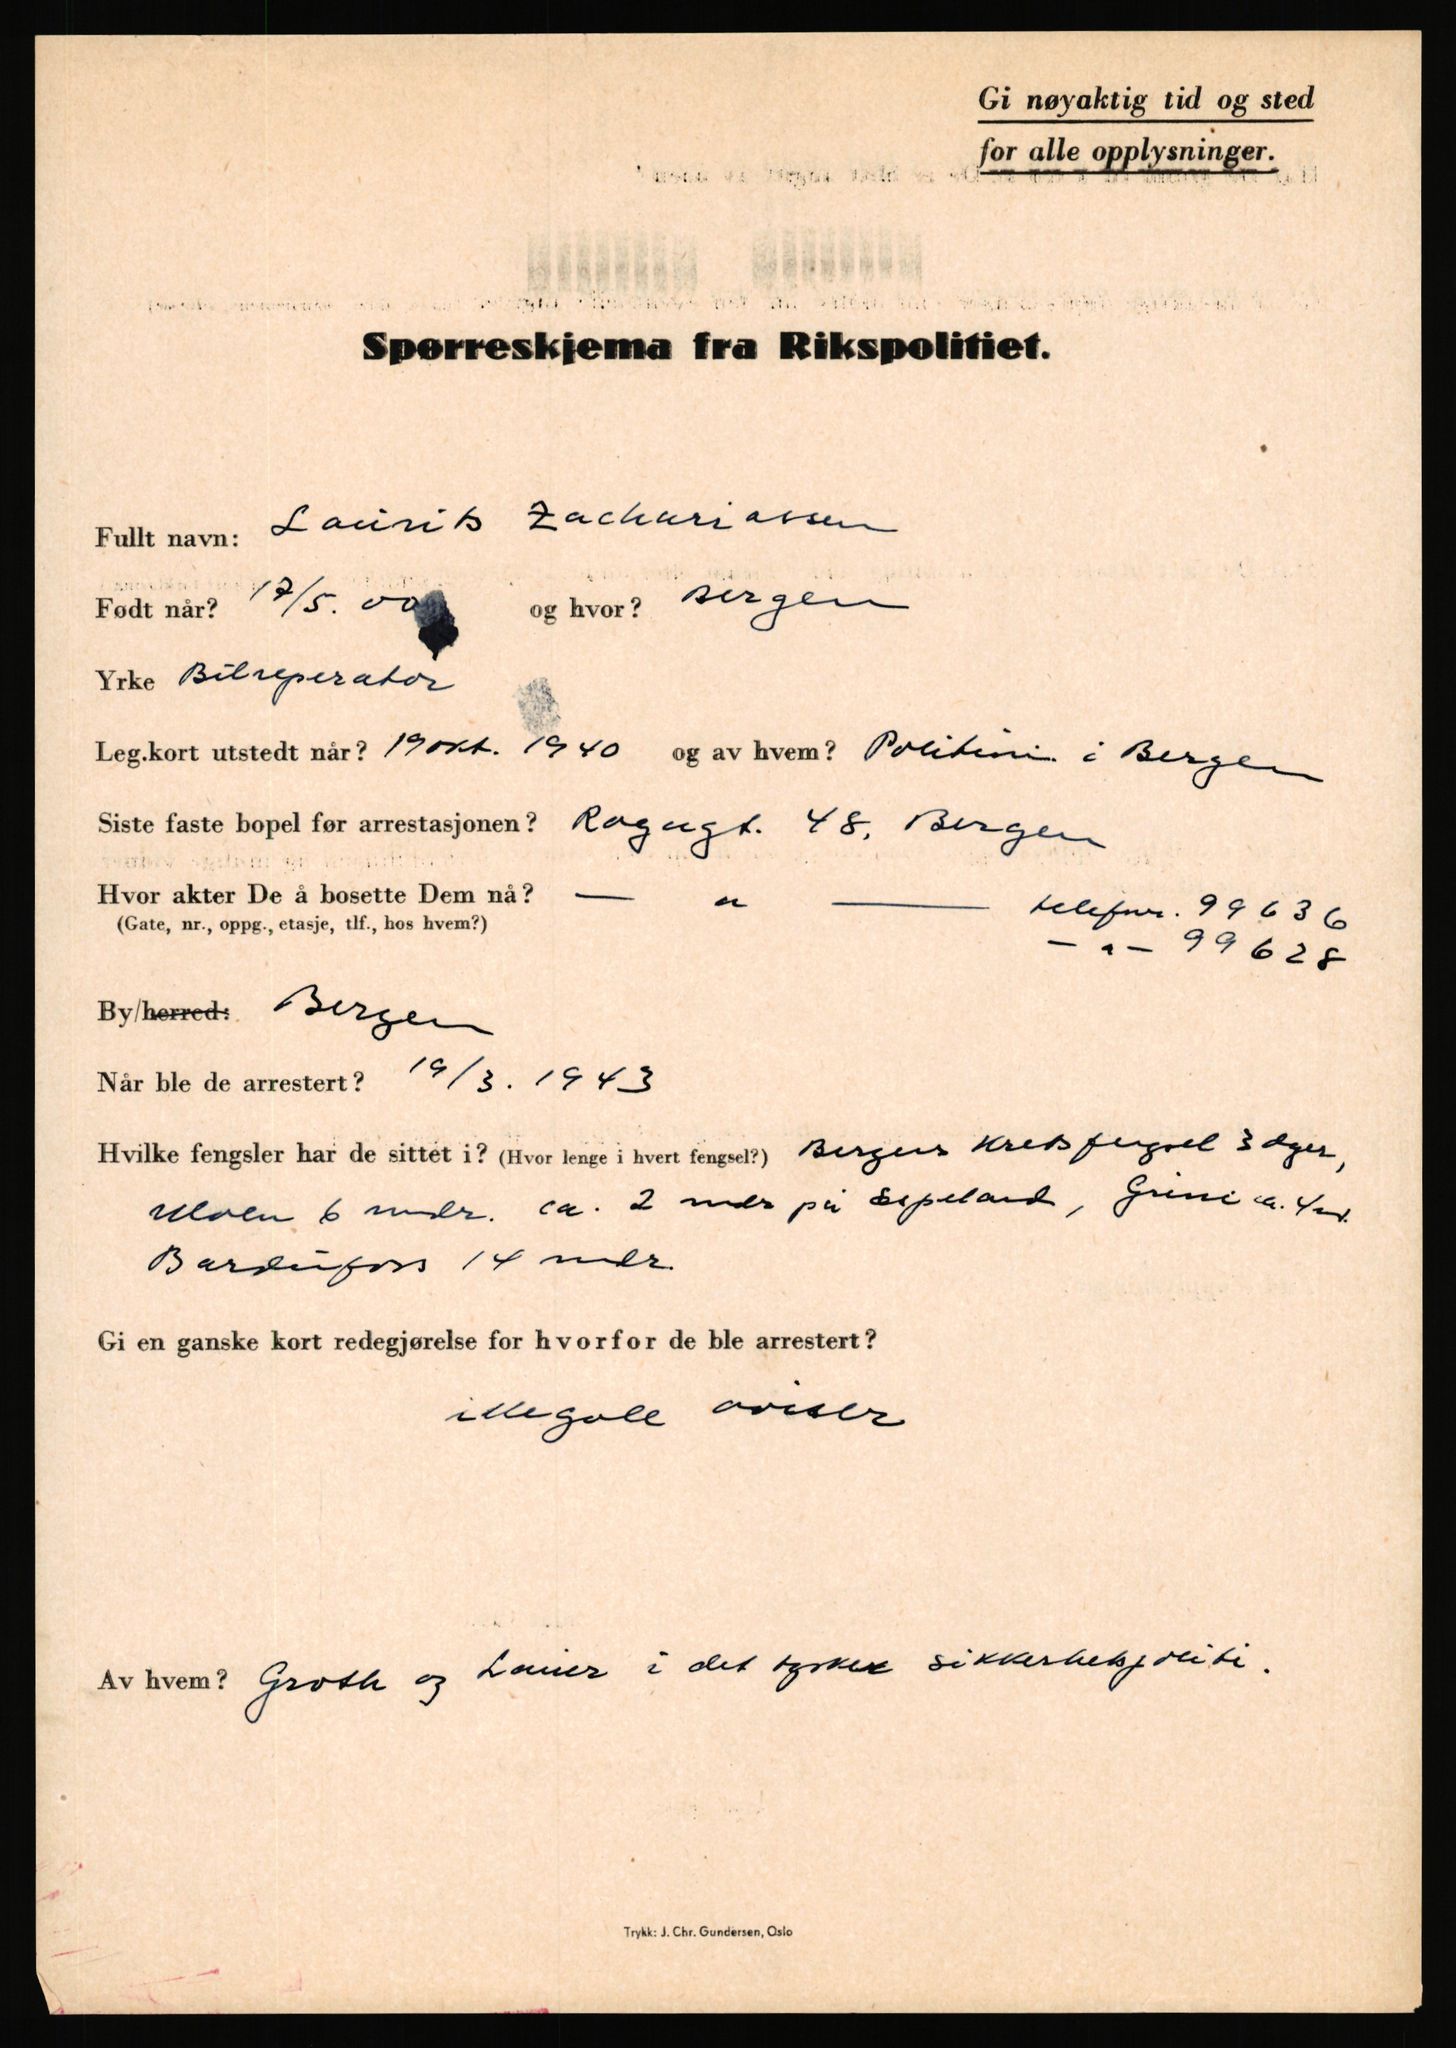 Gi nøyaktig tid og sted
for alle opplysninger.
Spørreskjema fra Rikspolitiet.
Fullt navn: Laurits Zachariassen
Født når? 17/5. 00 og hvor? Bergen
Yrke Bilreperatør
Leg.kort utstedt når? 19 okt. 1940 og av hvem? Politiet i Bergen
Siste faste bopel før arrestasjonen? 48, Bergen
Hvor akter De å bosette Dem nå? — „ — telefonr. 99636
(Gate, nr., oppg., etasje, tlf., hos hvem?) — „ — 99628
By/herred: Bergen
Når ble de arrestert? 19/3. 1943
Hvilke fengsler har de sittet i? (Hvor lenge i hvert fengsel?) Bergens Kretsfengsel 3 dger,
Ulven 6 mdr. ca. 2 mdr på Espeland, Grini ca. 4 md.
Bardufoss 14 mdr.
Gi en ganske kort redegjørelse for hvorfor de ble arrestert?
illegale aviser
Av hvem? Groth og i det tyske sikkerhetspoliti.
Trykk: J. Chr. Gundersen, Oslo